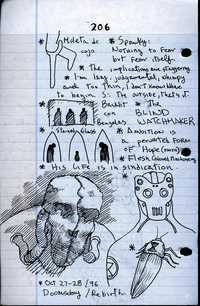 206
* Muleta de cojo
* Spooky:
Nothing to fear
but fear itself.
* The implications are staggering.
* I'm lazy, judgemental, chimps
and too thin, I don't know where
to begin S: The outside, that's it.
* Bandit con Bengalas
* The BLIND WATCHMAKER
* Stained Glass
* Ambition is
a perverted form
of Hope
* Flesh Colored Machinery
* His Life is in syndication
* Oct 27-28/96
Doomsday / Rebirth